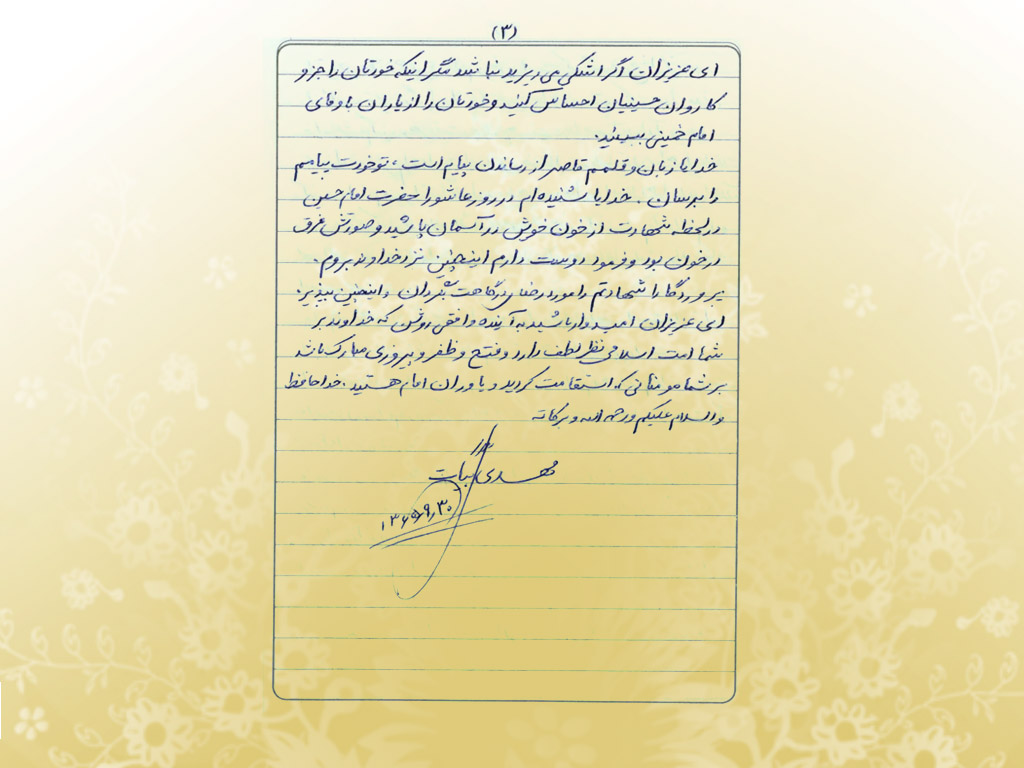 (۳)
ای عزیزان اگر اشکی می ریزید نباشد مگر اینکه خودتان را جزو
کاروان حسینیان احساس کنید و خودتان را از یاران باوفای
امام خمینی ببینید.
خدایا زبان و قلمم قاصر از رساندن پیام است، تو خودت پیامم
را برسان. خدایا شنیده ام در روز عاشورا حضرت امام حسین
در لحظه شهادت از خون خویش در آسمان پاشید و صورتش غرق
در خون بود و فرمود دوست دارم اینچنین نزد خداوند بروم.
پروردگارا شهادتم را مورد رضای درگاهت بگردان و اینچنین بپذیر.
ای عزیزان امیدوار باشید به آینده و افقی روشن که خداوند بر
شما امت اسلامی نظر لطف دارد و فتح و ظفر و پیروزی مبارک باشد
بر شما مومنانی که استقامت کردید و یاوران امام هستید. خداحافظ
والسلام علیکم ورحمه الله وبرکاته
مهدی بیات
۱۳۶۵٫۹٫۳۰